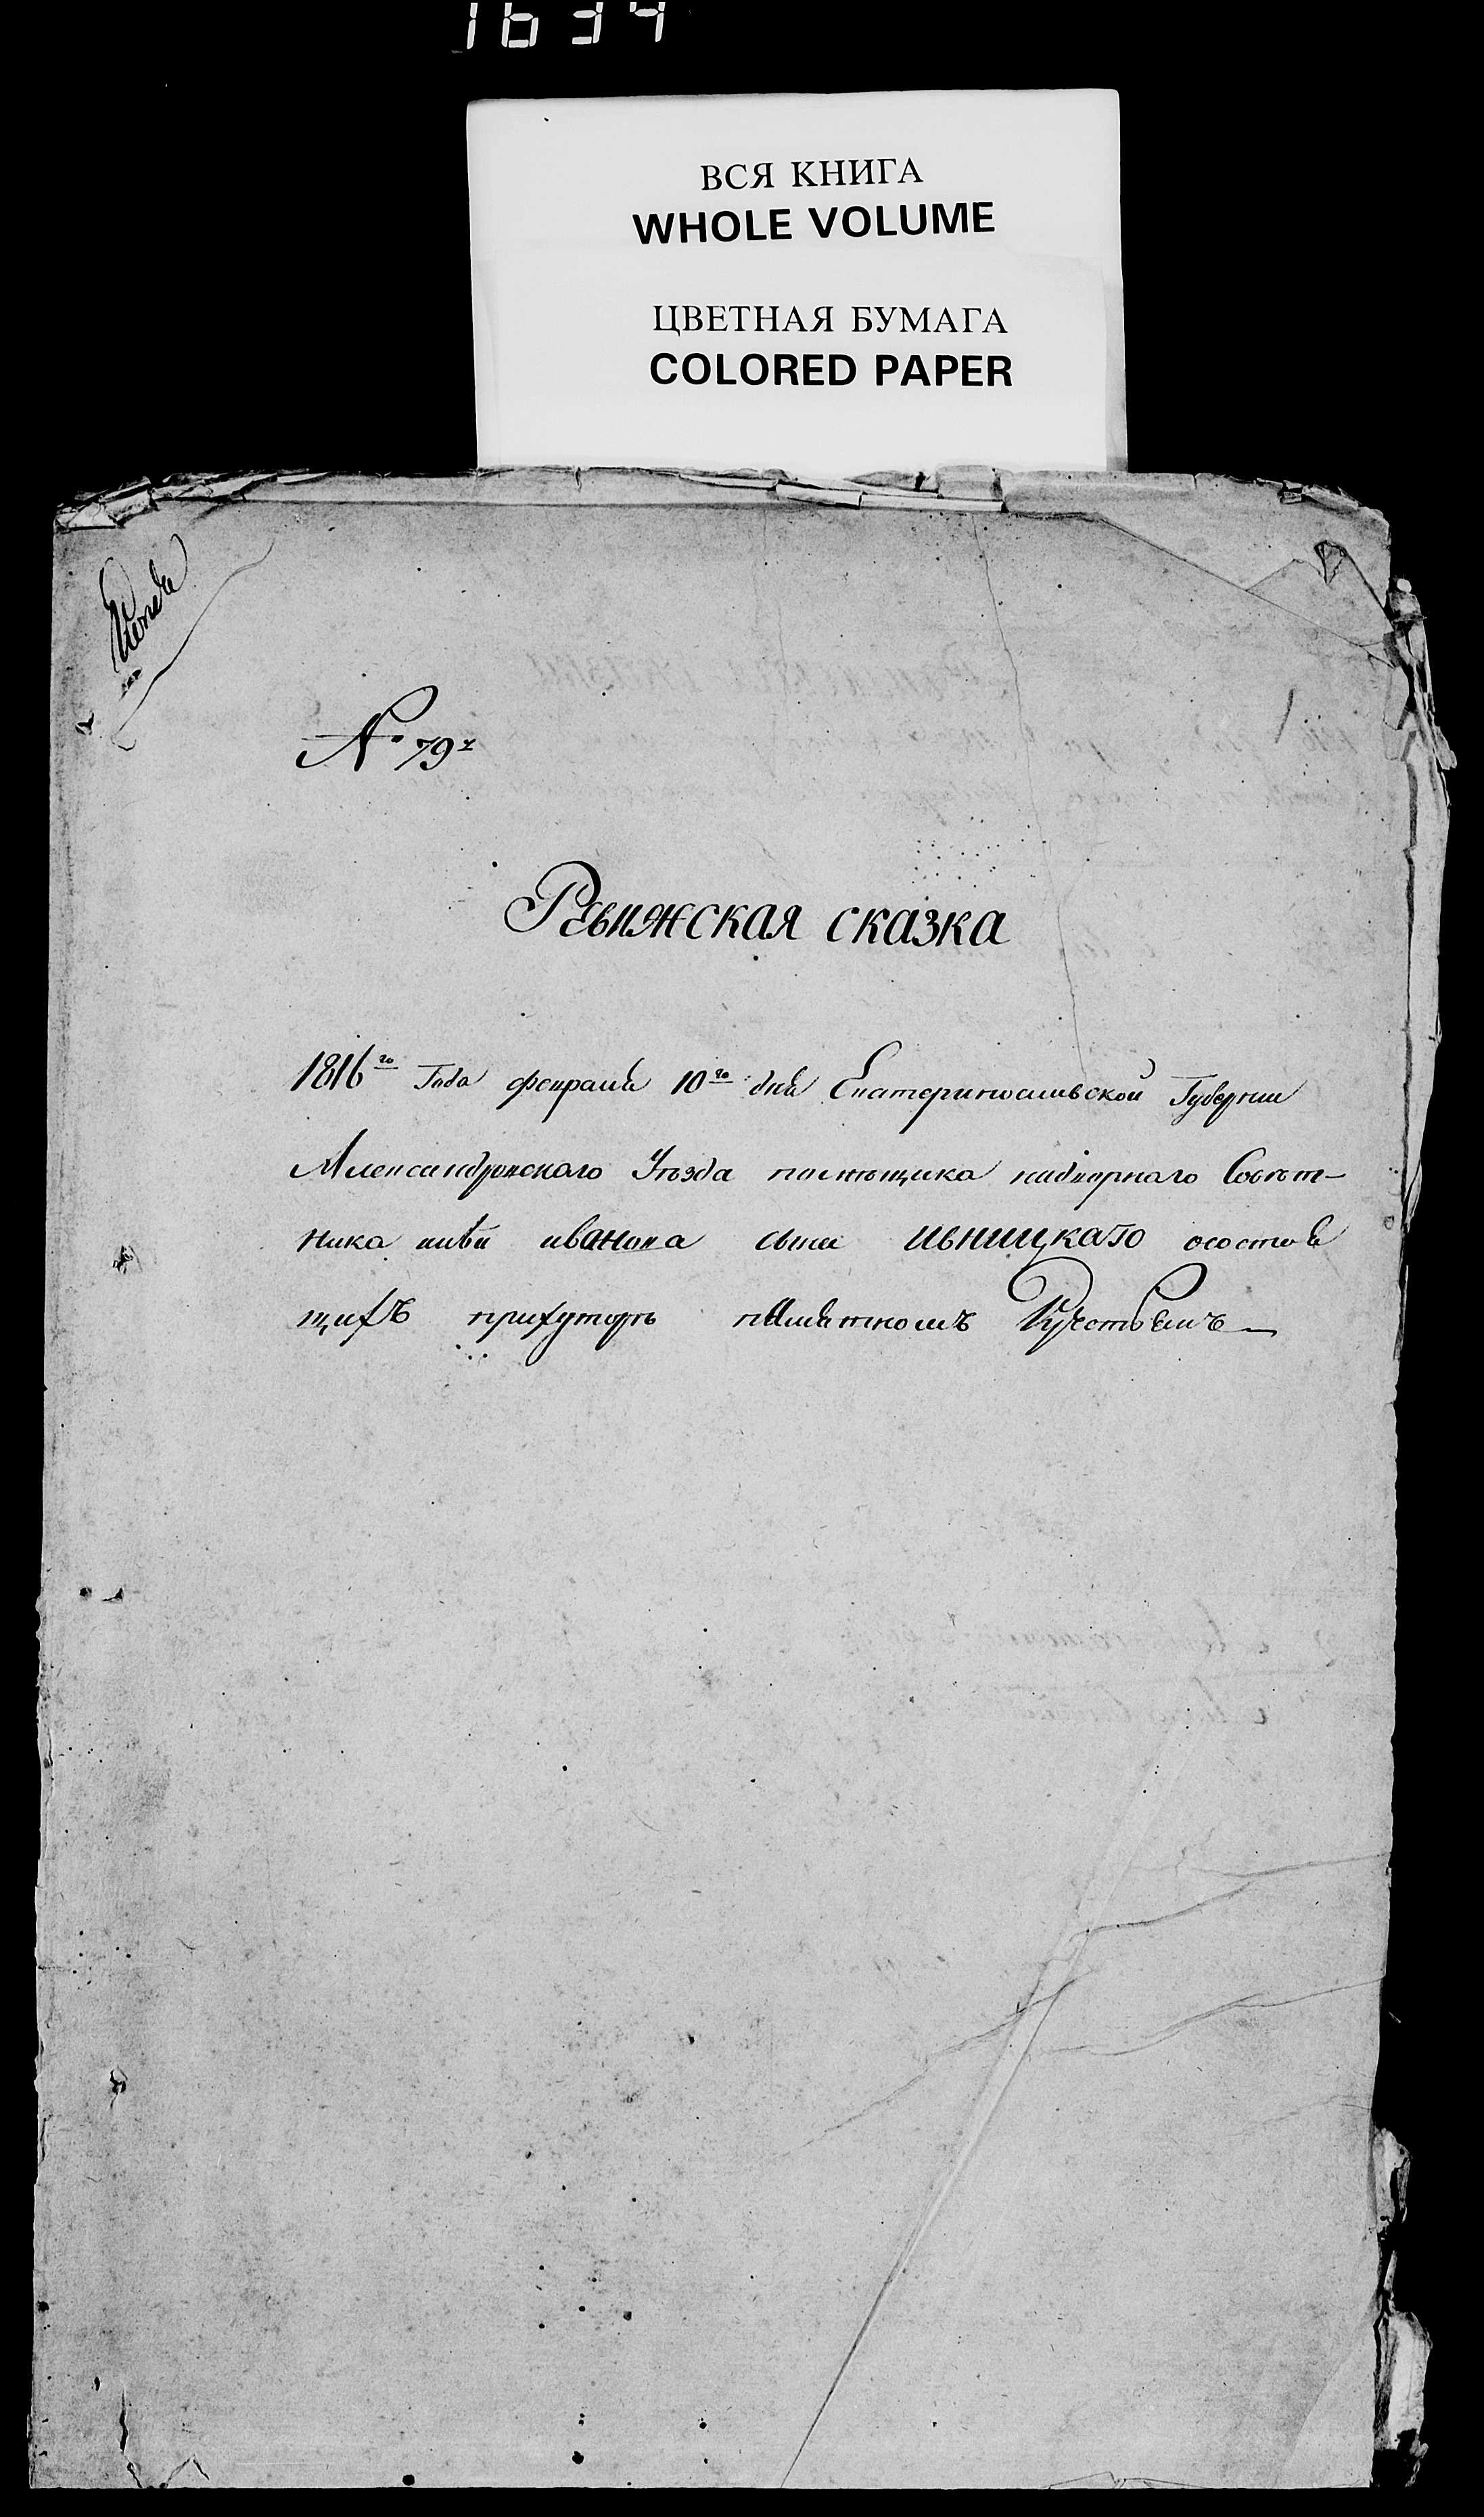 1634
ВСЯ КНИГА
WHOLE VOLUME
ЦВЕТНАЯ БУМАГА
COLORED PAPER
№ 79
Ревижская сказка
1816го Года февраля 10го дня Екатеринославской Губернии
Александровского Уѣзда помѣщика надворнаго Совѣт-
ника ивана сына ивницкаго осостоя
щихъ